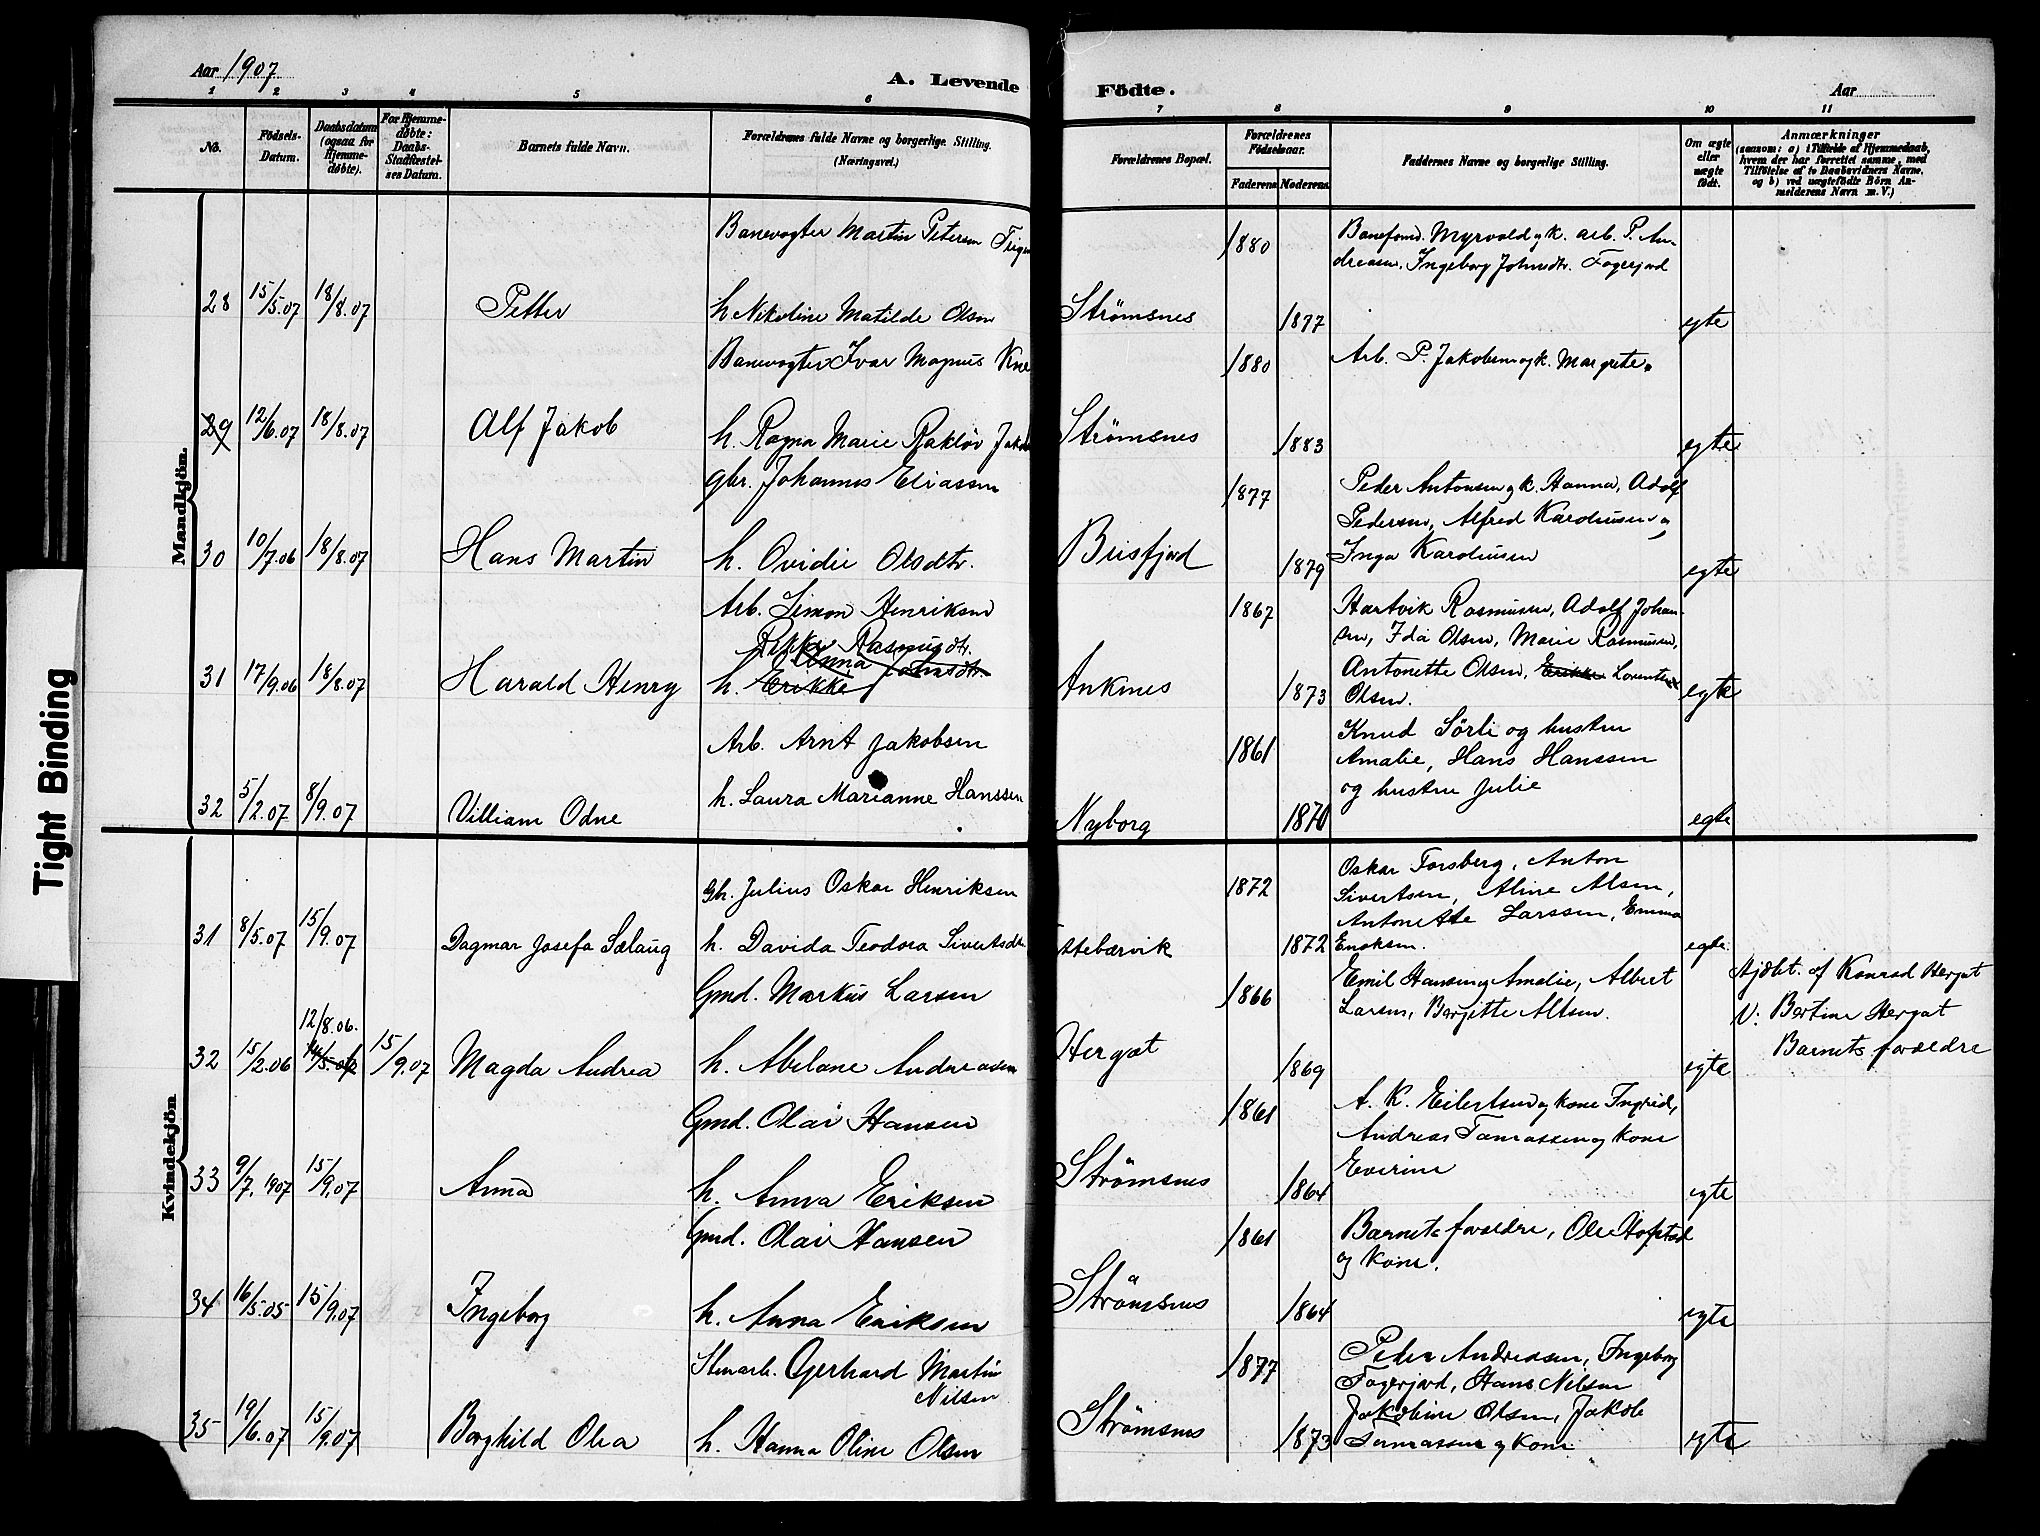 Aar 1907
A. Levende Födte.
Aar
1 2 3 4 5 6 7 8 9 10 11
No.
Födsels-Datum.
Daabsdatum (ogsaa for Hjemme-döbte).
For Hjemme-döbte: Daabs-Stadfæstel-ses Datum.
Barnets fulde Navn.
Forældrenes fulde Navne og borgerlige Stilling.
(Næringsvei.)
Forældrenes Bopæl.
Forældrenes Födselsaar.
Faderens Moderens
Faddernes Navne og borgerlige Stilling.
Om ægte eller uægte födt.
Anmærkninger
(saasom: a) i Tilfælde af Hjemmedaab,
hvem der har forrettet samme, med
Tilföielse af to Daabsvidners Navne,
og b) ved uægtefödte Börn An-
melderens Navn m. V.)
Mandkjön.
Banevogter Martin Petersen
1880
Banefomd. Myrvold og k. arb. P. An-
dreasen, Ingeborg Johnsdtr. Fagerjord
28 15/5.07 18/8.07 Petter h Nikoline Matilde Olsen Strömsnes 1877 egte
Banevogter Ivar Magnus
1880
Arb. P. Jakobsen og k. Margrete.
29 12/6.07 18/8.07 Alf Jakob h. Ragna Marie Strömsnes 1883 egte
gbr. Johannes Eliassen
1877
Peder Antonsen og k. Hanna, Adolf
Pedersen, Alfred Karolinsen og
30 10/7.06 18/8.07 Hans Martin h. Ovidie Olsdtr. Beisfjord 1879 Inga Karolinsen egte
Arb. Simon Henriksen
1867
Hartvik Rasmusen, Adolf Johan-
sen, Ida Olsen, Marie Rasmusen,
Rasmusdtr.
Anna
Antonette Olsen, Erikke
31 17/9.06 18/8.07 Harald Henry h. Erikke Ankenes 1873 Olsen. egte
Arb. Arnt Jakobsen
1861
Knud Sörli og hustru
Amalie, Hans Hanssen
og hustru Julie
32 5/2.07 8/9.07 Villiam Odne h. Laura Marianne Hanssen Nyborg 1870 egte
Kvindekjön
Gb. Julius Oskar Henriksen
1872
Oskar Forsberg, Anton
Sivertsen, Aline Alsen,
Antonette Larssen, Emma
31 8/5.07 15/9.07 Dagmar Josefa Solaug h. Davida Teodora Sivertsdtr. 1872 Enoksen. egte
Gmd. Markus Larsen
1866
Emil Hansen og Amalie, Albert
Larsen, Bergitte Altsen.
Hjdbt. af Konrad Hergot
V: Bertine Hergot
Barnets forældre
12/8.06.
32 15/2.06 15/9.07 Magda Andrea h. Abelone Andreasen Hergot 1869 egte
Gmd. Olai Hansen
1861
A. K. Eilertsen og kone Ingrid,
Andreas Tomassen og kone
Everine
33 9/7.1907 15/9.07 Anna h. Anna Eriksen Strömsnes 1864 egte
Gmd. Olai Hansen
1861
Barnets forældre, Ole Hofstad
og kone.
34 16/5.05 15/9.07 Ingeborg h. Anna Eriksen Strömsnes 1864 egte
Stenarb. Gerhard Martin
Nilsen
1877
Peder Andreasen, Ingeborg
Fagerjord, Hans Nilsen
Jakobine Olsen, Jakob
35 19/6.07 15/9.07 Borghild Olea h. Hanna Oline Olsen Strömsnes 1873 Tomassen og kone egte
Tight Binding